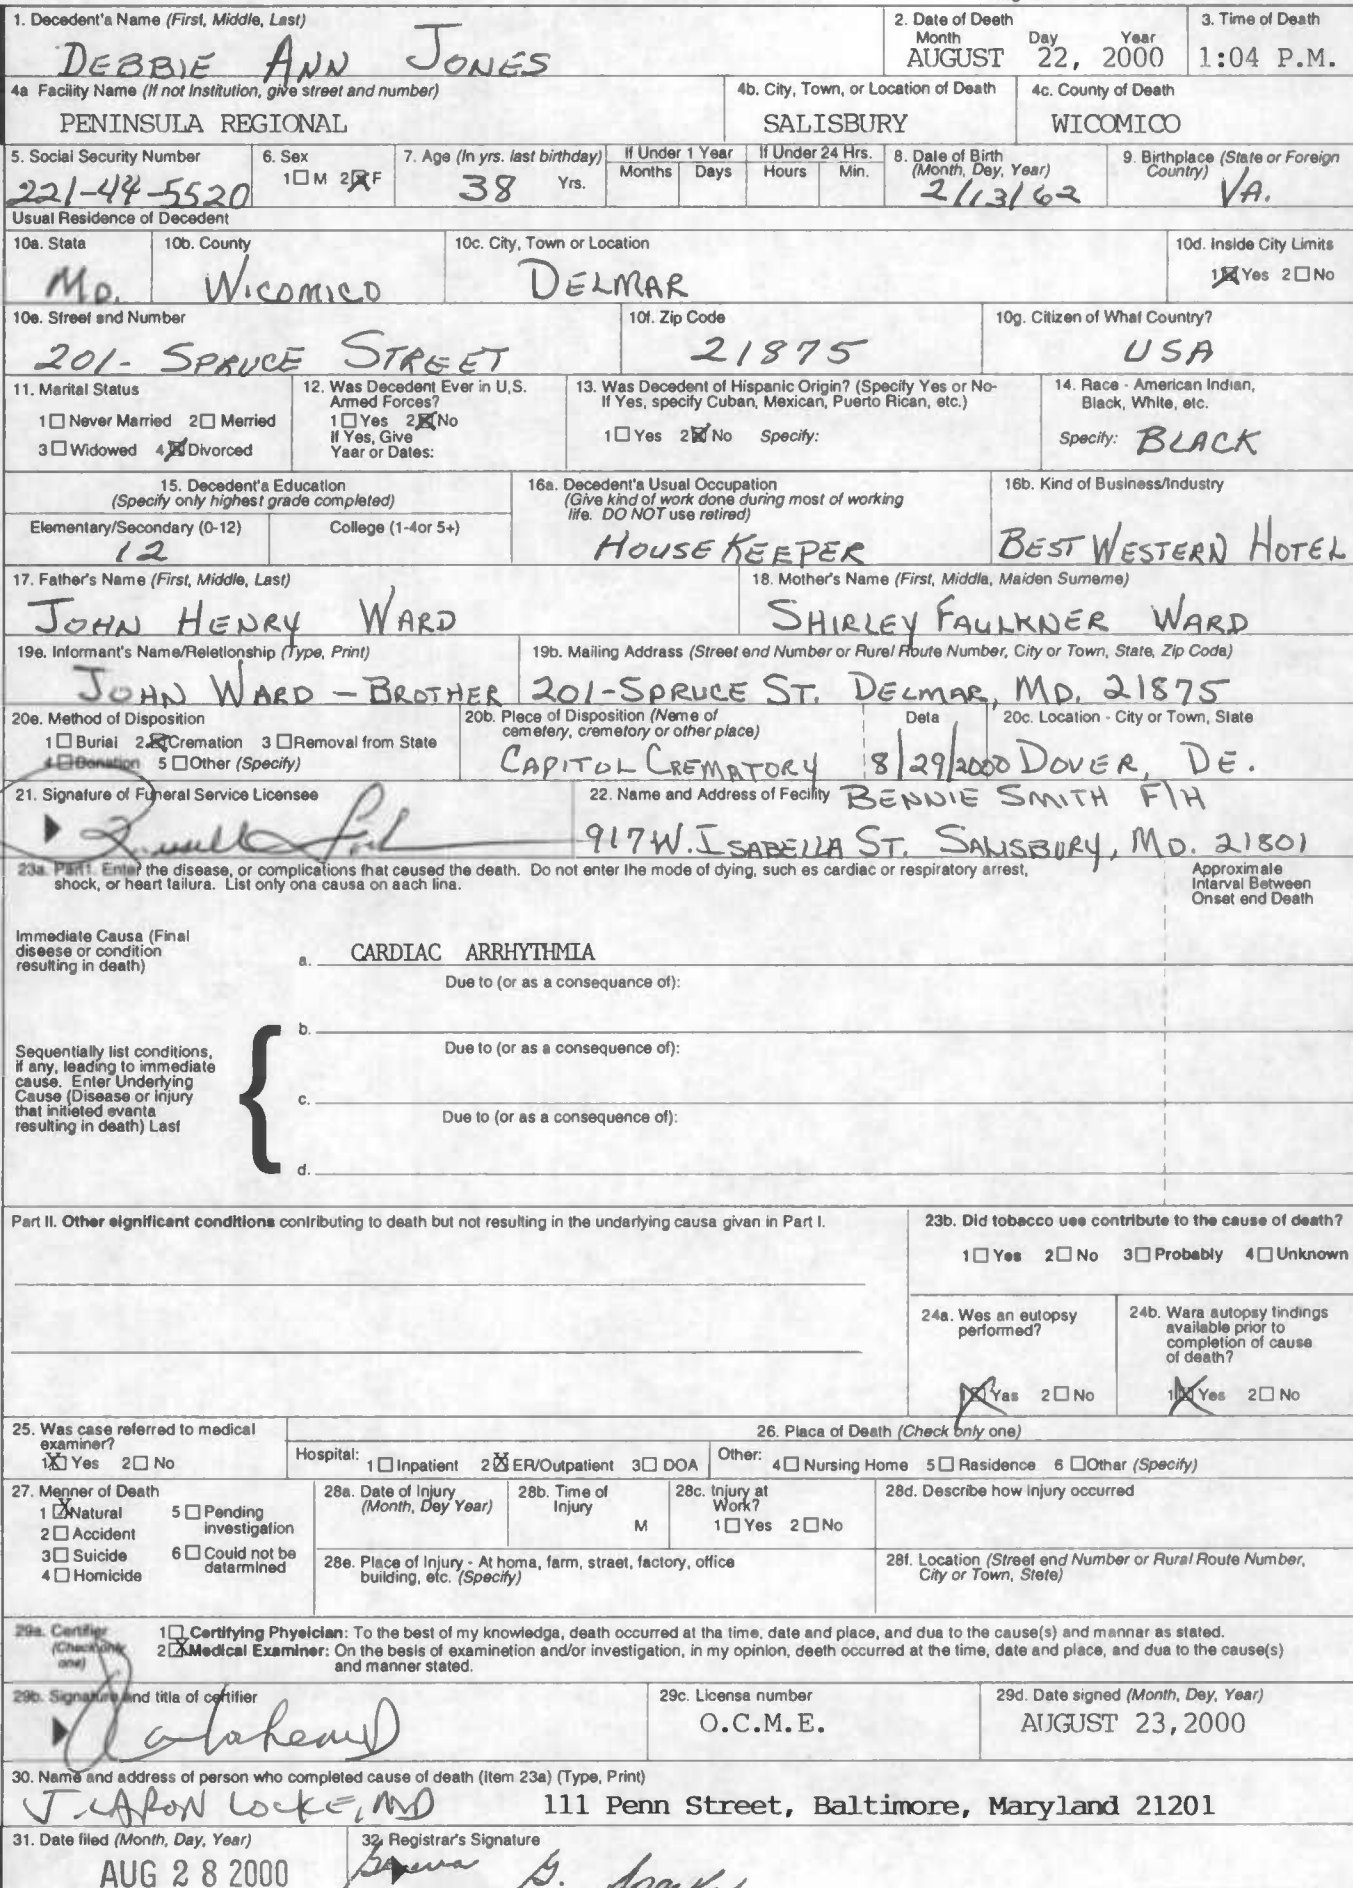 1. Decedent's Name (First, Middle, Last)
DEBBIE ANN JONES
2. Date of Deeth
Month Day Year
AUGUST 22, 2000
3. Time of Death
1:04 P.M.
4a Facility Name (If not Institution, give street and number)
PENINSULA REGIONAL
4b. City, Town, or Location of Death
SALISBURY
4c. County of Death
WICOMICO
5. Social Security Number
221-44-5520
6. Sex
1☐M 2☒F
7. Age (In yrs. last birthday)
38 Yrs.
If Under 1 Year
Months Days
If Under 24 Hrs.
Hours Min.
8. Date of Birth
(Month, Dey, Year)
2/13/62
9. Birthplace (State or Foreign
Country)
VA.
Usual Residence of Decedent
10a. State
MD.
10b. County
WICOMICO
10c. City, Town or Location
DELMAR
10d. Inside City Limits
1☒Yes 2☐No
10e. Street and Number
201- SPRUCE STREET
10f. Zip Code
21875
10g. Citizen of What Country?
USA
11. Marital Status
1☐Never Married 2☐Merried
3☐Widowed 4☒Divorced
12. Was Decedent Ever in U.S.
Armed Forces?
1☐Yes 2☒No
If Yes, Give
Yaar or Dates:
13. Was Decedent of Hispanic Origin? (Specify Yes or No-
If Yes, specify Cuban, Mexican, Puerto Rican, etc.)
1☐Yes 2☒No Specify:
14. Race - American Indian,
Black, White, etc.
Specify: BLACK
15. Decedent's Education
(Specify only highest grade completed)
Elementary/Secondary (0-12) College (1-4or 5+)
12
16a. Decedent's Usual Occupation
(Give kind of work done during most of working
life. DO NOT use retired)
HOUSEKEEPER
16b. Kind of Business/Industry
BEST WESTERN HOTEL
17. Father's Name (First, Middle, Last)
JOHN HENRY WARD
18. Mother's Name (First, Middle, Maiden Surneme)
SHIRLEY FAULKNER WARD
19e. Informant's Name/Reletlonship (Type, Print)
JOHN WARD - BROTHER
19b. Mailing Address (Street end Number or Rurel Route Number, City or Town, State, Zip Coda)
201-SPRUCE ST. DELMAR, MD. 21875
20e. Method of Disposition
1☐Burial 2☒Cremation 3☐Removal from State
4☐Donation 5☐Other (Specify)
20b. Plece of Disposition (Neme of
cemetery, cremetory or other place)
CAPITOL CREMATORY
Deta
8/29/2000
20c. Location - City or Town, State
DOVER, DE.
21. Signature of Funeral Service Licensee
22. Name and Address of Fecility BENNIE SMITH F/H
917 W. ISABELLA ST. SALISBURY, MD. 21801
23a. Part I. Enter the disease, or complications that ceused the death. Do not enter the mode of dying, such es cardiac or respiratory arrest,
shock, or heart failura. List only ona causa on aach lina.
Approximale
Intarval Between
Onset end Death
Immediate Causa (Final
diseese or condition
resulting in death)
a. CARDIAC ARRHYTHMIA
Due to (or as a consequance of):
b.
Due to (or as a consequence of):
c.
Due to (or as a consequence of):
d.
Sequentially list conditions,
if any, leading to immediate
cause. Enter Underlying
Cause (Disease or injury
that initieted evanta
resulting in death) Last
Part II. Other significant conditions contributing to death but not resulting in the undarlying causa givan in Part I.
23b. Did tobacco uee contribute to the cause of death?
1☐Yes 2☐No 3☐Probably 4☐Unknown
24a. Wes an eutopsy
performed?
1☒Yas 2☐No
24b. Wara autopsy findings
available prior to
completion of cause
of death?
1☒Yes 2☐No
25. Was case referred to medical
examiner?
1☒Yes 2☐No
26. Placa of Death (Check only one)
Hospital: 1☐Inpatient 2☒ER/Outpatient 3☐DOA
Other: 4☐Nursing Home 5☐Rasidence 6☐Othar (Specify)
27. Menner of Death
1☒Natural 5☐Pending
investigation
2☐Accident
3☐Suicide 6☐Could not be
datarmined
4☐Homicide
28a. Date of Injury
(Month, Dey Year)
28b. Time of
Injury
M
28c. Injury at
Work?
1☐Yes 2☐No
28d. Describe how injury occurred
28e. Place of Injury - At homa, farm, straet, factory, office
building, etc. (Specify)
28f. Location (Street end Number or Rural Route Number,
City or Town, Stete)
29a. Certifier
(Check only
one)
1☐Certifying Phyeician: To the best of my knowledga, death occurred at tha time, date and place, and dua to the cause(s) and mannar as stated.
2☒Medical Examiner: On the besis of examinetion and/or investigation, in my opinion, deeth occurred at the time, date and place, and dua to the cause(s)
and manner stated.
29b. Signature and title of certifier
29c. Licensa number
O.C.M.E.
29d. Date signed (Month, Dey, Year)
AUGUST 23,2000
30. Name and address of person who completed cause of death (item 23a) (Type, Print)
J. LARON LOCKE, MD 111 Penn Street, Baltimore, Maryland 21201
31. Date filed (Month, Day, Year)
AUG 28 2000
32. Registrar's Signature